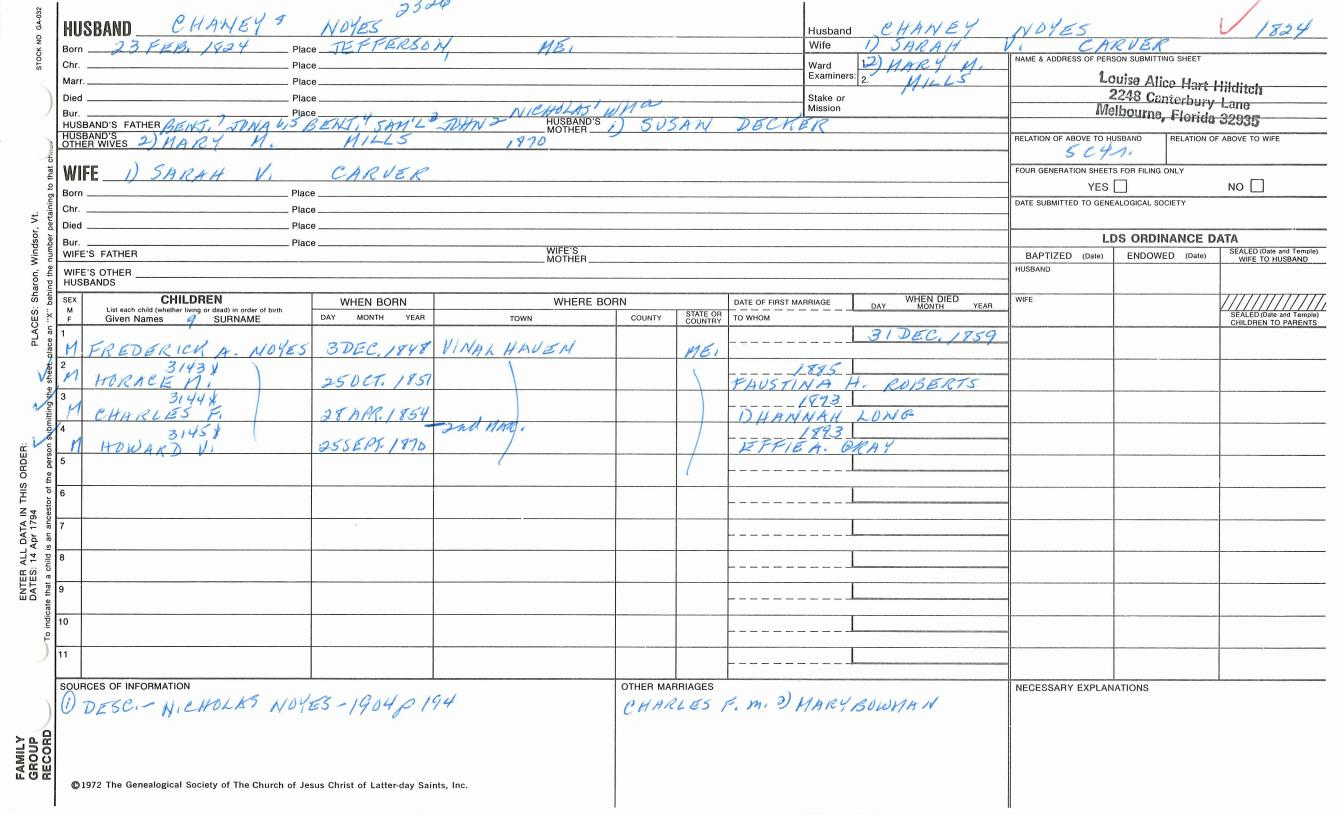 STOCK NO GA-032
2326
HUSBAND CHANEY 8 NOYES
Born 23 FEB. 1824 Place JEFFERSON, ME.
Chr. Place
Marr. Place
Died Place
Bur. Place
NICHOLAS' WM a
HUSBAND'S FATHER BENJ, 7 JONA 6,5 BENJ, 4 SAM'L 3 JOHN 2
HUSBAND'S MOTHER 1) SUSAN DECKER
HUSBAND'S OTHER WIVES 2) MARY M. MILLS 1870
Husband CHANEY NOYES 1824
Wife 1) SARAH V. CARVER
Ward Examiners: 1. 2) MARY M.
2. MILLS
Stake or Mission
NAME & ADDRESS OF PERSON SUBMITTING SHEET
Louise Alice Hart Hilditch
2248 Canterbury Lane
Melbourne, Florida 32935
RELATION OF ABOVE TO HUSBAND RELATION OF ABOVE TO WIFE
5C4r.
FOUR GENERATION SHEETS FOR FILING ONLY
YES NO
DATE SUBMITTED TO GENEALOGICAL SOCIETY
WIFE 1) SARAH V. CARVER
Born Place
Chr. Place
Died Place
Bur. Place
WIFE'S FATHER WIFE'S MOTHER
WIFE'S OTHER HUSBANDS
LDS ORDINANCE DATA
BAPTIZED (Date) ENDOWED (Date) SEALED (Date and Temple) WIFE TO HUSBAND
HUSBAND
WIFE
SEALED (Date and Temple) CHILDREN TO PARENTS
SEX M F
CHILDREN
List each child (whether living or dead) in order of birth
Given Names 9 SURNAME
WHEN BORN
DAY MONTH YEAR
WHERE BORN
TOWN COUNTY STATE OR COUNTRY
DATE OF FIRST MARRIAGE
TO WHOM
WHEN DIED
DAY MONTH YEAR
1 31 DEC. 1859
M FREDERICK A. NOYES 3 DEC. 1848 VINAL HAVEN ME.
2 3143 X 1885
M HORACE M. 25 OCT. 1851 FAUSTINA H. ROBERTS
3 3144 X 1873
M CHARLES F. 28 APR. 1854 1) HANNAH LONG
4 3145 X 2nd Mar. 1893
M HOWARD V. 25 SEPT. 1870 EFFIE A. GRAY
5
6
7
8
9
10
11
SOURCES OF INFORMATION
① DESC. - NICHOLAS NOYES - 1904 p 194
OTHER MARRIAGES
CHARLES F. m. 2) MARY BOWMAN
NECESSARY EXPLANATIONS
©1972 The Genealogical Society of The Church of Jesus Christ of Latter-day Saints, Inc.
FAMILY GROUP RECORD
ENTER ALL DATA IN THIS ORDER:
DATES: 14 Apr 1794
PLACES: Sharon, Windsor, Vt.
To indicate that a child is an ancestor of the person submitting the sheet, place an "X" behind the number pertaining to that child